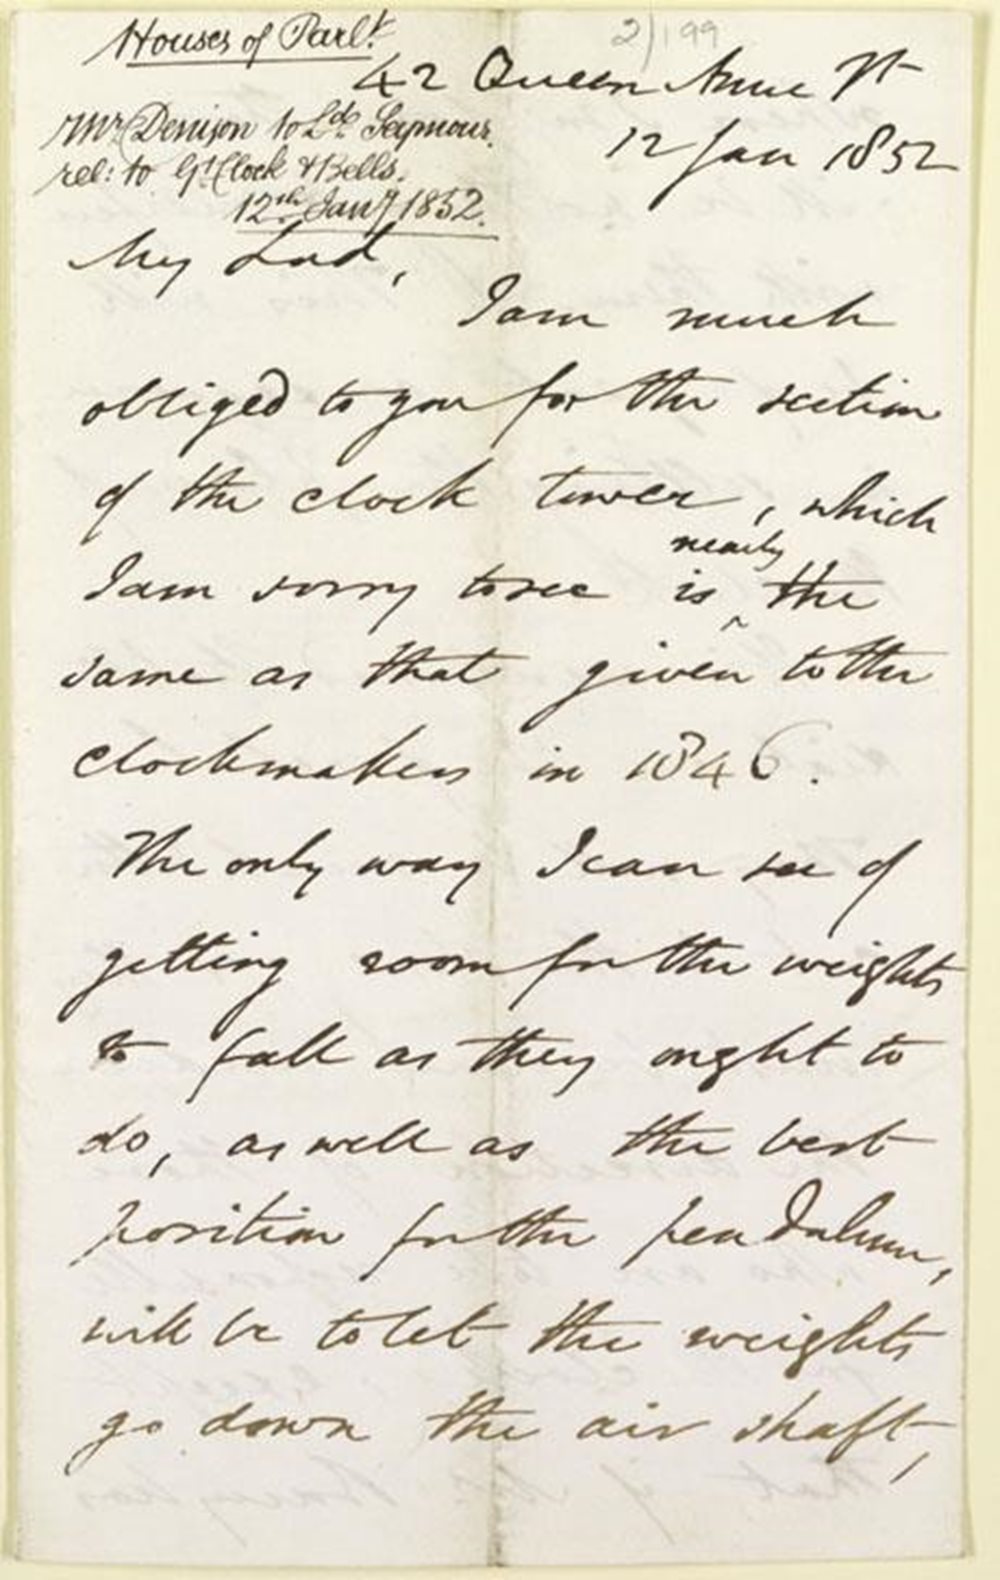 Houses of Parlt.
2/199
42 Queen Anne St
Mr Denison to Ld. Seymour.
rel: to Gt. Clock & Bells.
12th Jany 1852.
12 Jan 1852
My Lord,
I am much
obliged to you for the section
of the clock tower, which
nearly
I am sorry to see is ^ the
same as that given to the
clockmakers in 1846.
The only way I can see of
getting room for the weights
to fall as they ought to
do, as well as the best
position for the pendulum,
will be to let the weights
go down the air shaft,